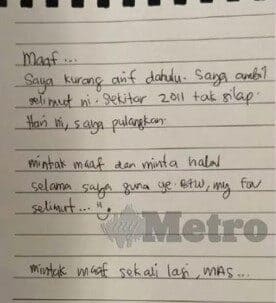 Maaf...
Saya kurang arif dahulu. Saya ambil
selimut ni. Sekitar 2011 tak silap.
Hari ni, saya pulangkan.
mintak maaf dan minta halal
selama saya guna ye. BTW, my fav
selimut...
Metro
mintak maaf sekali lagi, MAS...